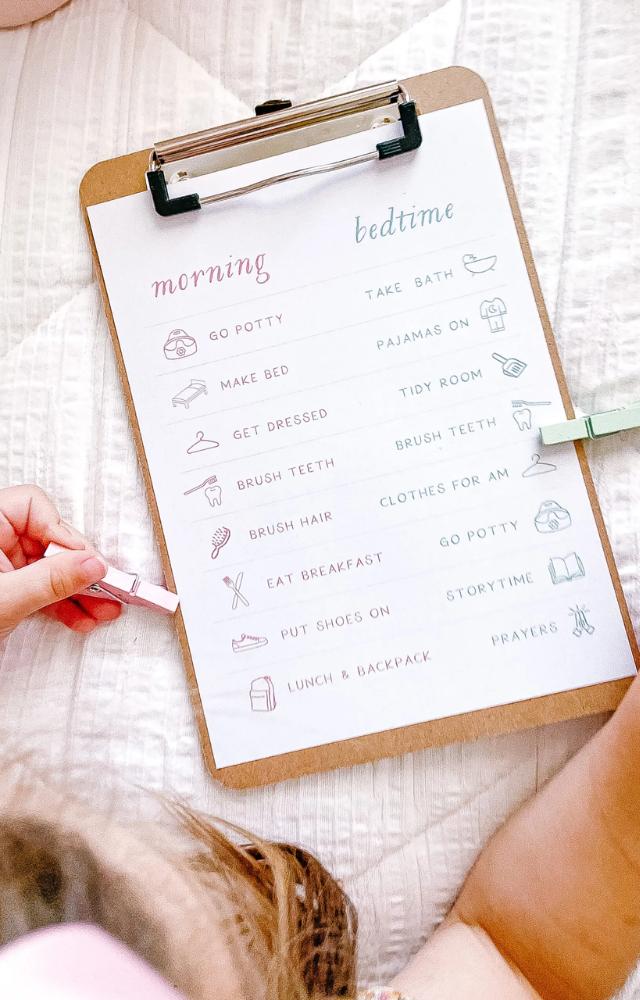 morning
GO POTTY
MAKE BED
GET DRESSED
BRUSH TEETH
BRUSH HAIR
EAT BREAKFAST
PUT SHOES ON
LUNCH & BACKPACK
bedtime
TAKE BATH
PAJAMAS ON
TIDY ROOM
BRUSH TEETH
CLOTHES FOR AM
GO POTTY
STORYTIME
PRAYERS